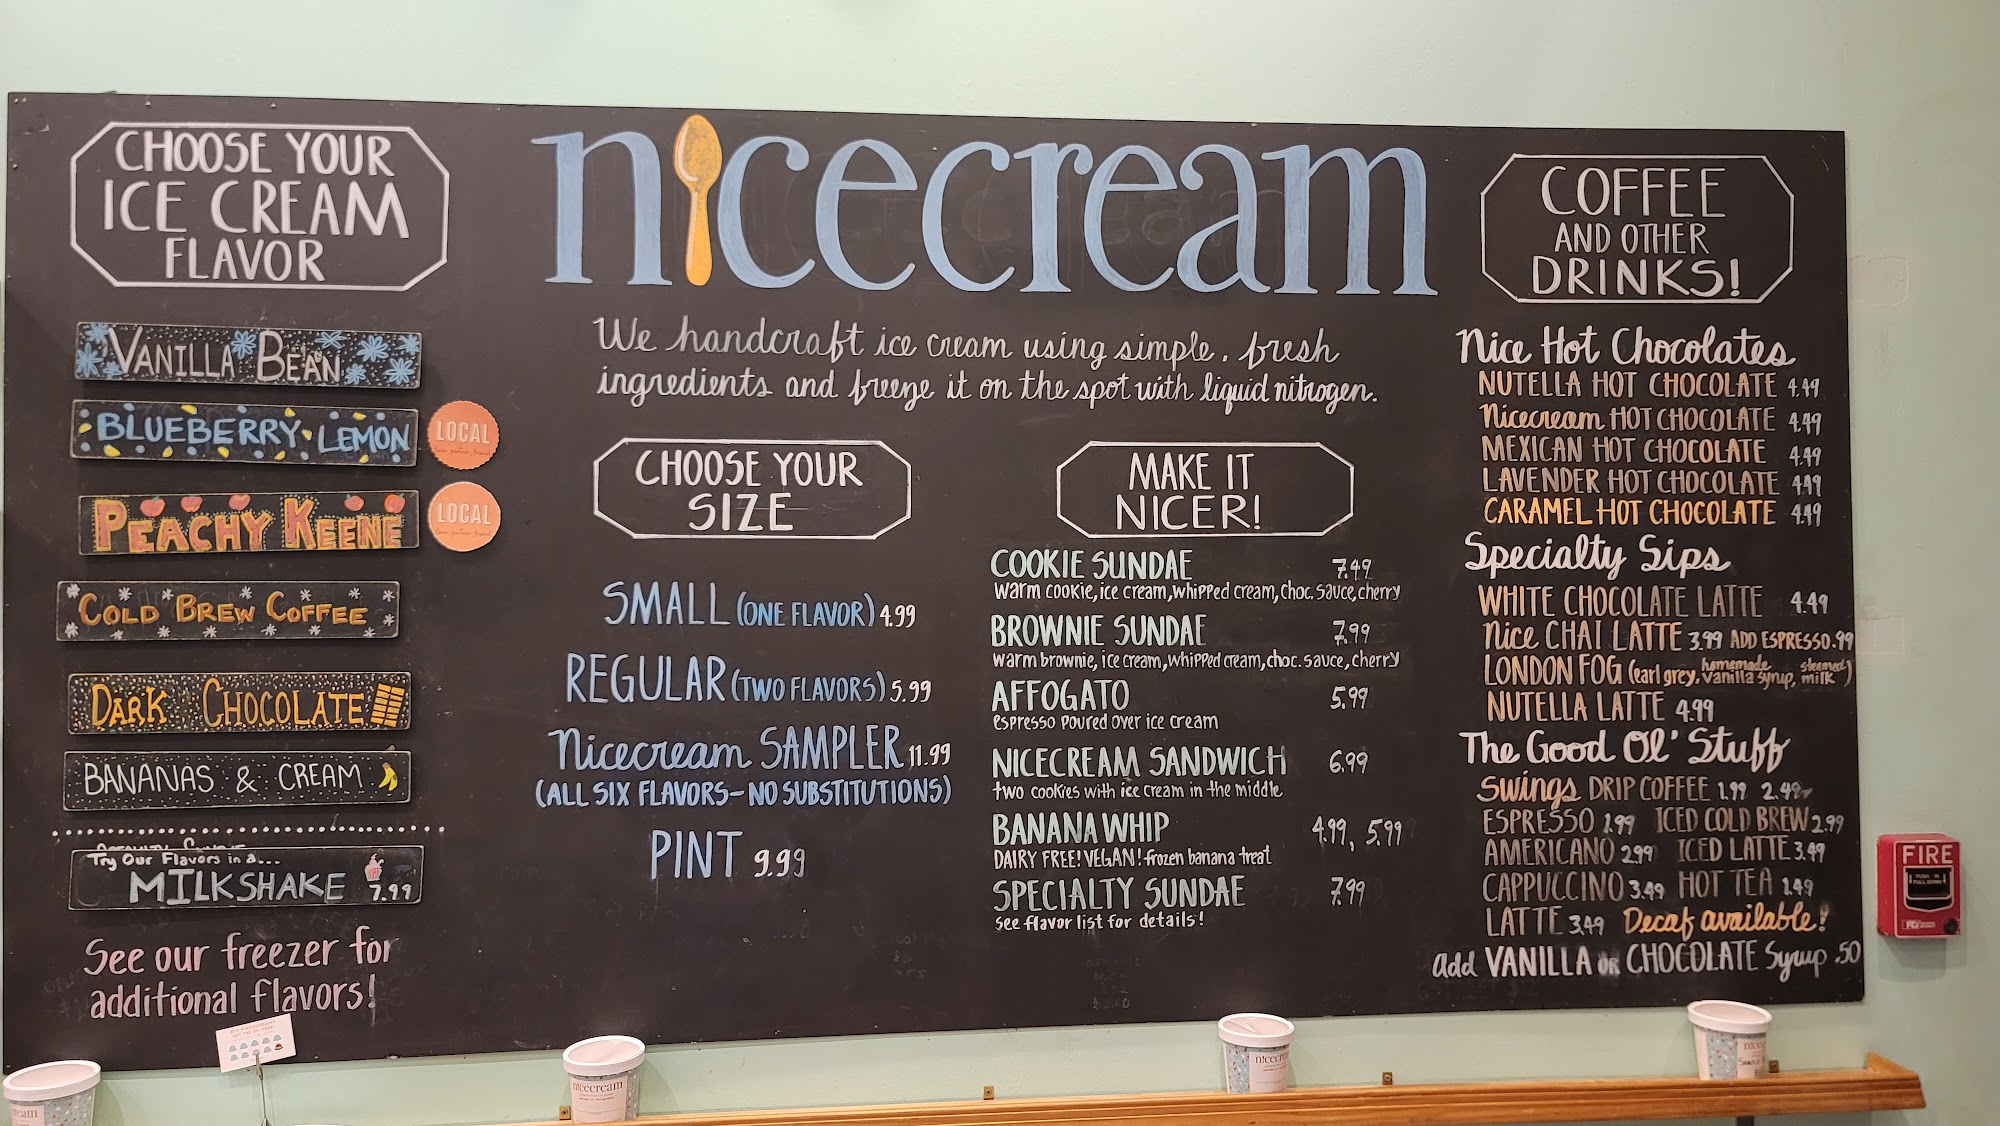 CHOOSE YOUR
ICE CREAM
FLAVOR
VANILLA BEAN
BLUEBERRY LEMON
LOCAL
PEACHY KEENE
LOCAL
COLD BREW COFFEE
DARK CHOCOLATE
BANANAS & CREAM
Try Our Flavors in a...
MILKSHAKE 7.99
See our freezer for
additional flavors!
nicecream
We handcraft ice cream using simple, fresh
ingredients and freeze it on the spot with liquid nitrogen.
CHOOSE YOUR
SIZE
SMALL (ONE FLAVOR) 4.99
REGULAR (TWO FLAVORS) 5.99
Nicecream SAMPLER 11.99
(ALL SIX FLAVORS-NO SUBSTITUTIONS)
PINT 9.99
MAKE IT
NICER!
COOKIE SUNDAE 7.49
warm cookie, ice cream, whipped cream, choc. sauce, cherry
BROWNIE SUNDAE 7.99
warm brownie, ice cream, whipped cream, choc. sauce, cherry
AFFOGATO 5.99
espresso poured over ice cream
NICECREAM SANDWICH 6.99
two cookies with ice cream in the middle
BANANA WHIP 4.99, 5.99
DAIRY FREE! VEGAN! frozen banana treat
SPECIALTY SUNDAE 7.99
see flavor list for details!
COFFEE
AND OTHER
DRINKS!
Nice Hot Chocolates
NUTELLA HOT CHOCOLATE 4.49
Nicecream HOT CHOCOLATE 4.49
MEXICAN HOT CHOCOLATE 4.49
LAVENDER HOT CHOCOLATE 4.49
CARAMEL HOT CHOCOLATE 4.49
Specialty Sips
WHITE CHOCOLATE LATTE 4.49
Nice CHAI LATTE 3.99 ADD ESPRESSO .99
LONDON FOG (earl grey, homemade vanilla syrup, steamed milk)
NUTELLA LATTE 4.99
The Good Ol' Stuff
Swings DRIP COFFEE 1.99 2.49
ESPRESSO 1.99 ICED COLD BREW 2.99
AMERICANO 2.99 ICED LATTE 3.49
CAPPUCCINO 3.49 HOT TEA 1.49
LATTE 3.49 Decaf available!
add VANILLA OR CHOCOLATE Syrup .50
FIRE
PUSH IN
PULL DOWN
nicecream
nicecream